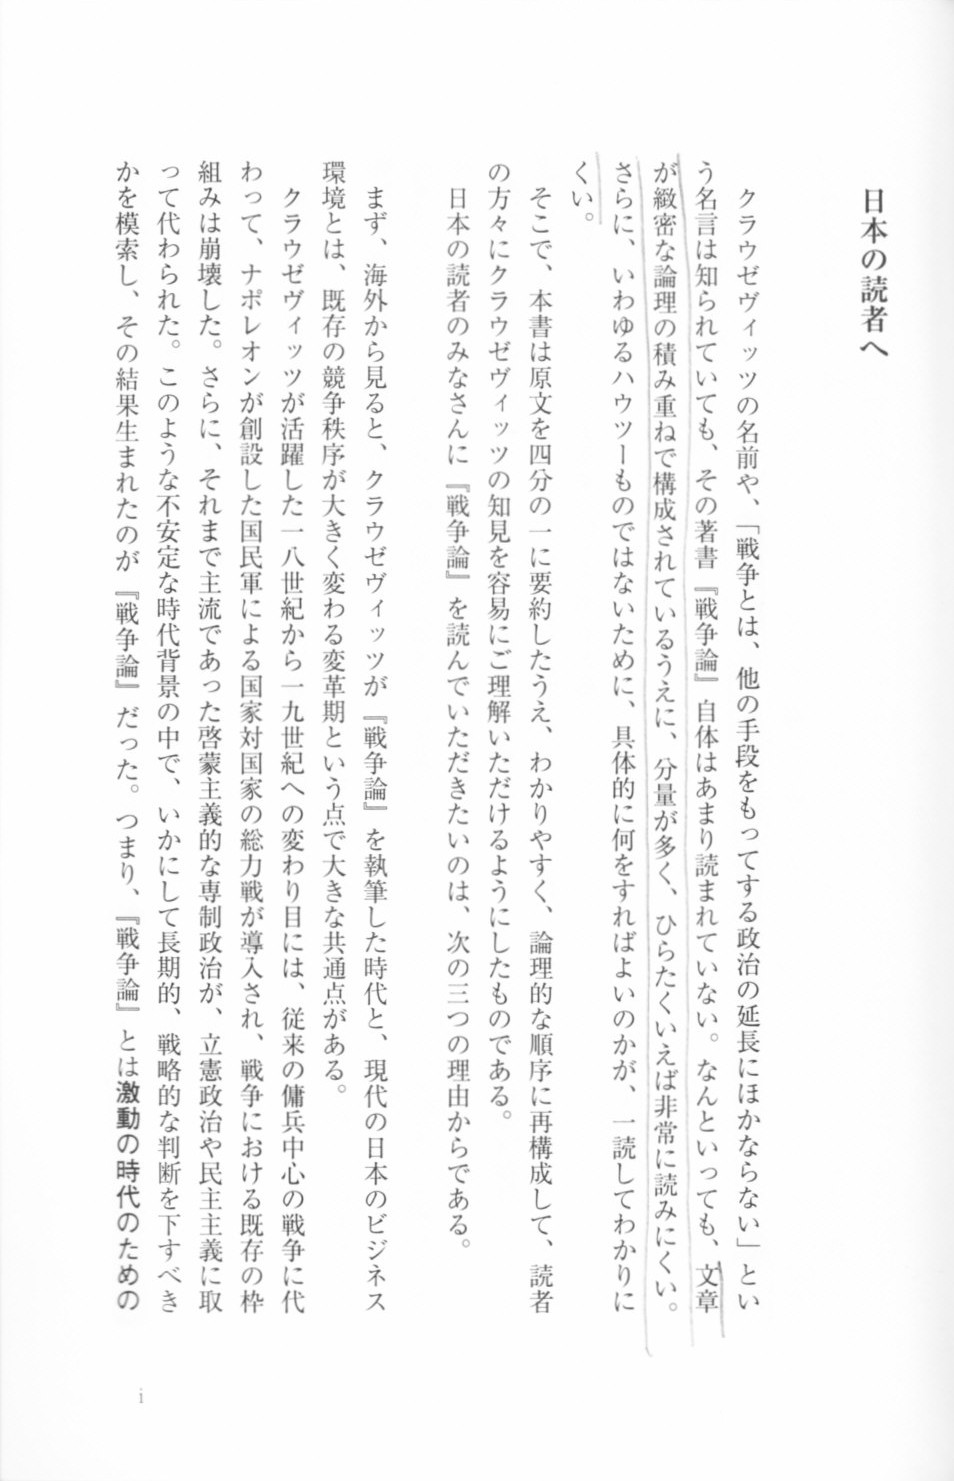 日本の読者へ
クラウゼヴィッツの名前や、「戦争とは、他の手段をもってする政治の延長にほかならない」とい
う名言は知られていても、その著書『戦争論』自体はあまり読まれていない。なんといっても、文章
が緻密な論理の積み重ねで構成されているうえに、分量が多く、ひらたくいえば非常に読みにくい。
さらに、いわゆるハウツーものではないために、具体的に何をすればよいのかが、一読してわかりに
くい。
そこで、本書は原文を四分の一に要約したうえ、わかりやすく、論理的な順序に再構成して、読者
の方々にクラウゼヴィッツの知見を容易にご理解いただけるようにしたものである。
日本の読者のみなさんに『戦争論』を読んでいただきたいのは、次の三つの理由からである。
まず、海外から見ると、クラウゼヴィッツが『戦争論』を執筆した時代と、現代の日本のビジネス
環境とは、既存の競争秩序が大きく変わる変革期という点で大きな共通点がある。
クラウゼヴィッツが活躍した一八世紀から一九世紀への変わり目には、従来の傭兵中心の戦争に代
わって、ナポレオンが創設した国民軍による国家対国家の総力戦が導入され、戦争における既存の枠
組みは崩壊した。さらに、それまで主流であった啓蒙主義的な専制政治が、立憲政治や民主主義に取
って代わられた。このような不安定な時代背景の中で、いかにして長期的、戦略的な判断を下すべき
かを模索し、その結果生まれたのが『戦争論』だった。つまり、『戦争論』とは激動の時代のための
i